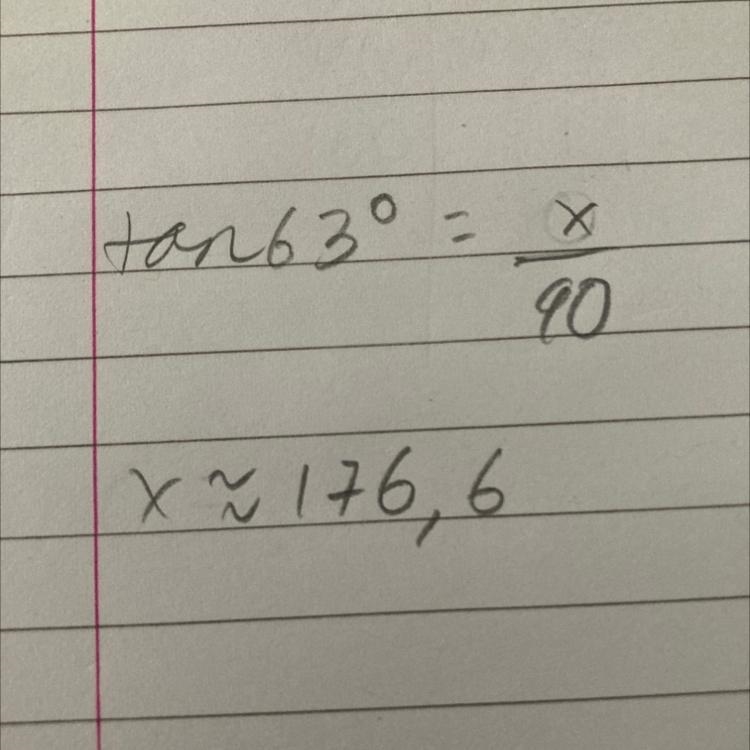 tan63° = x/90
x ≈ 176,6